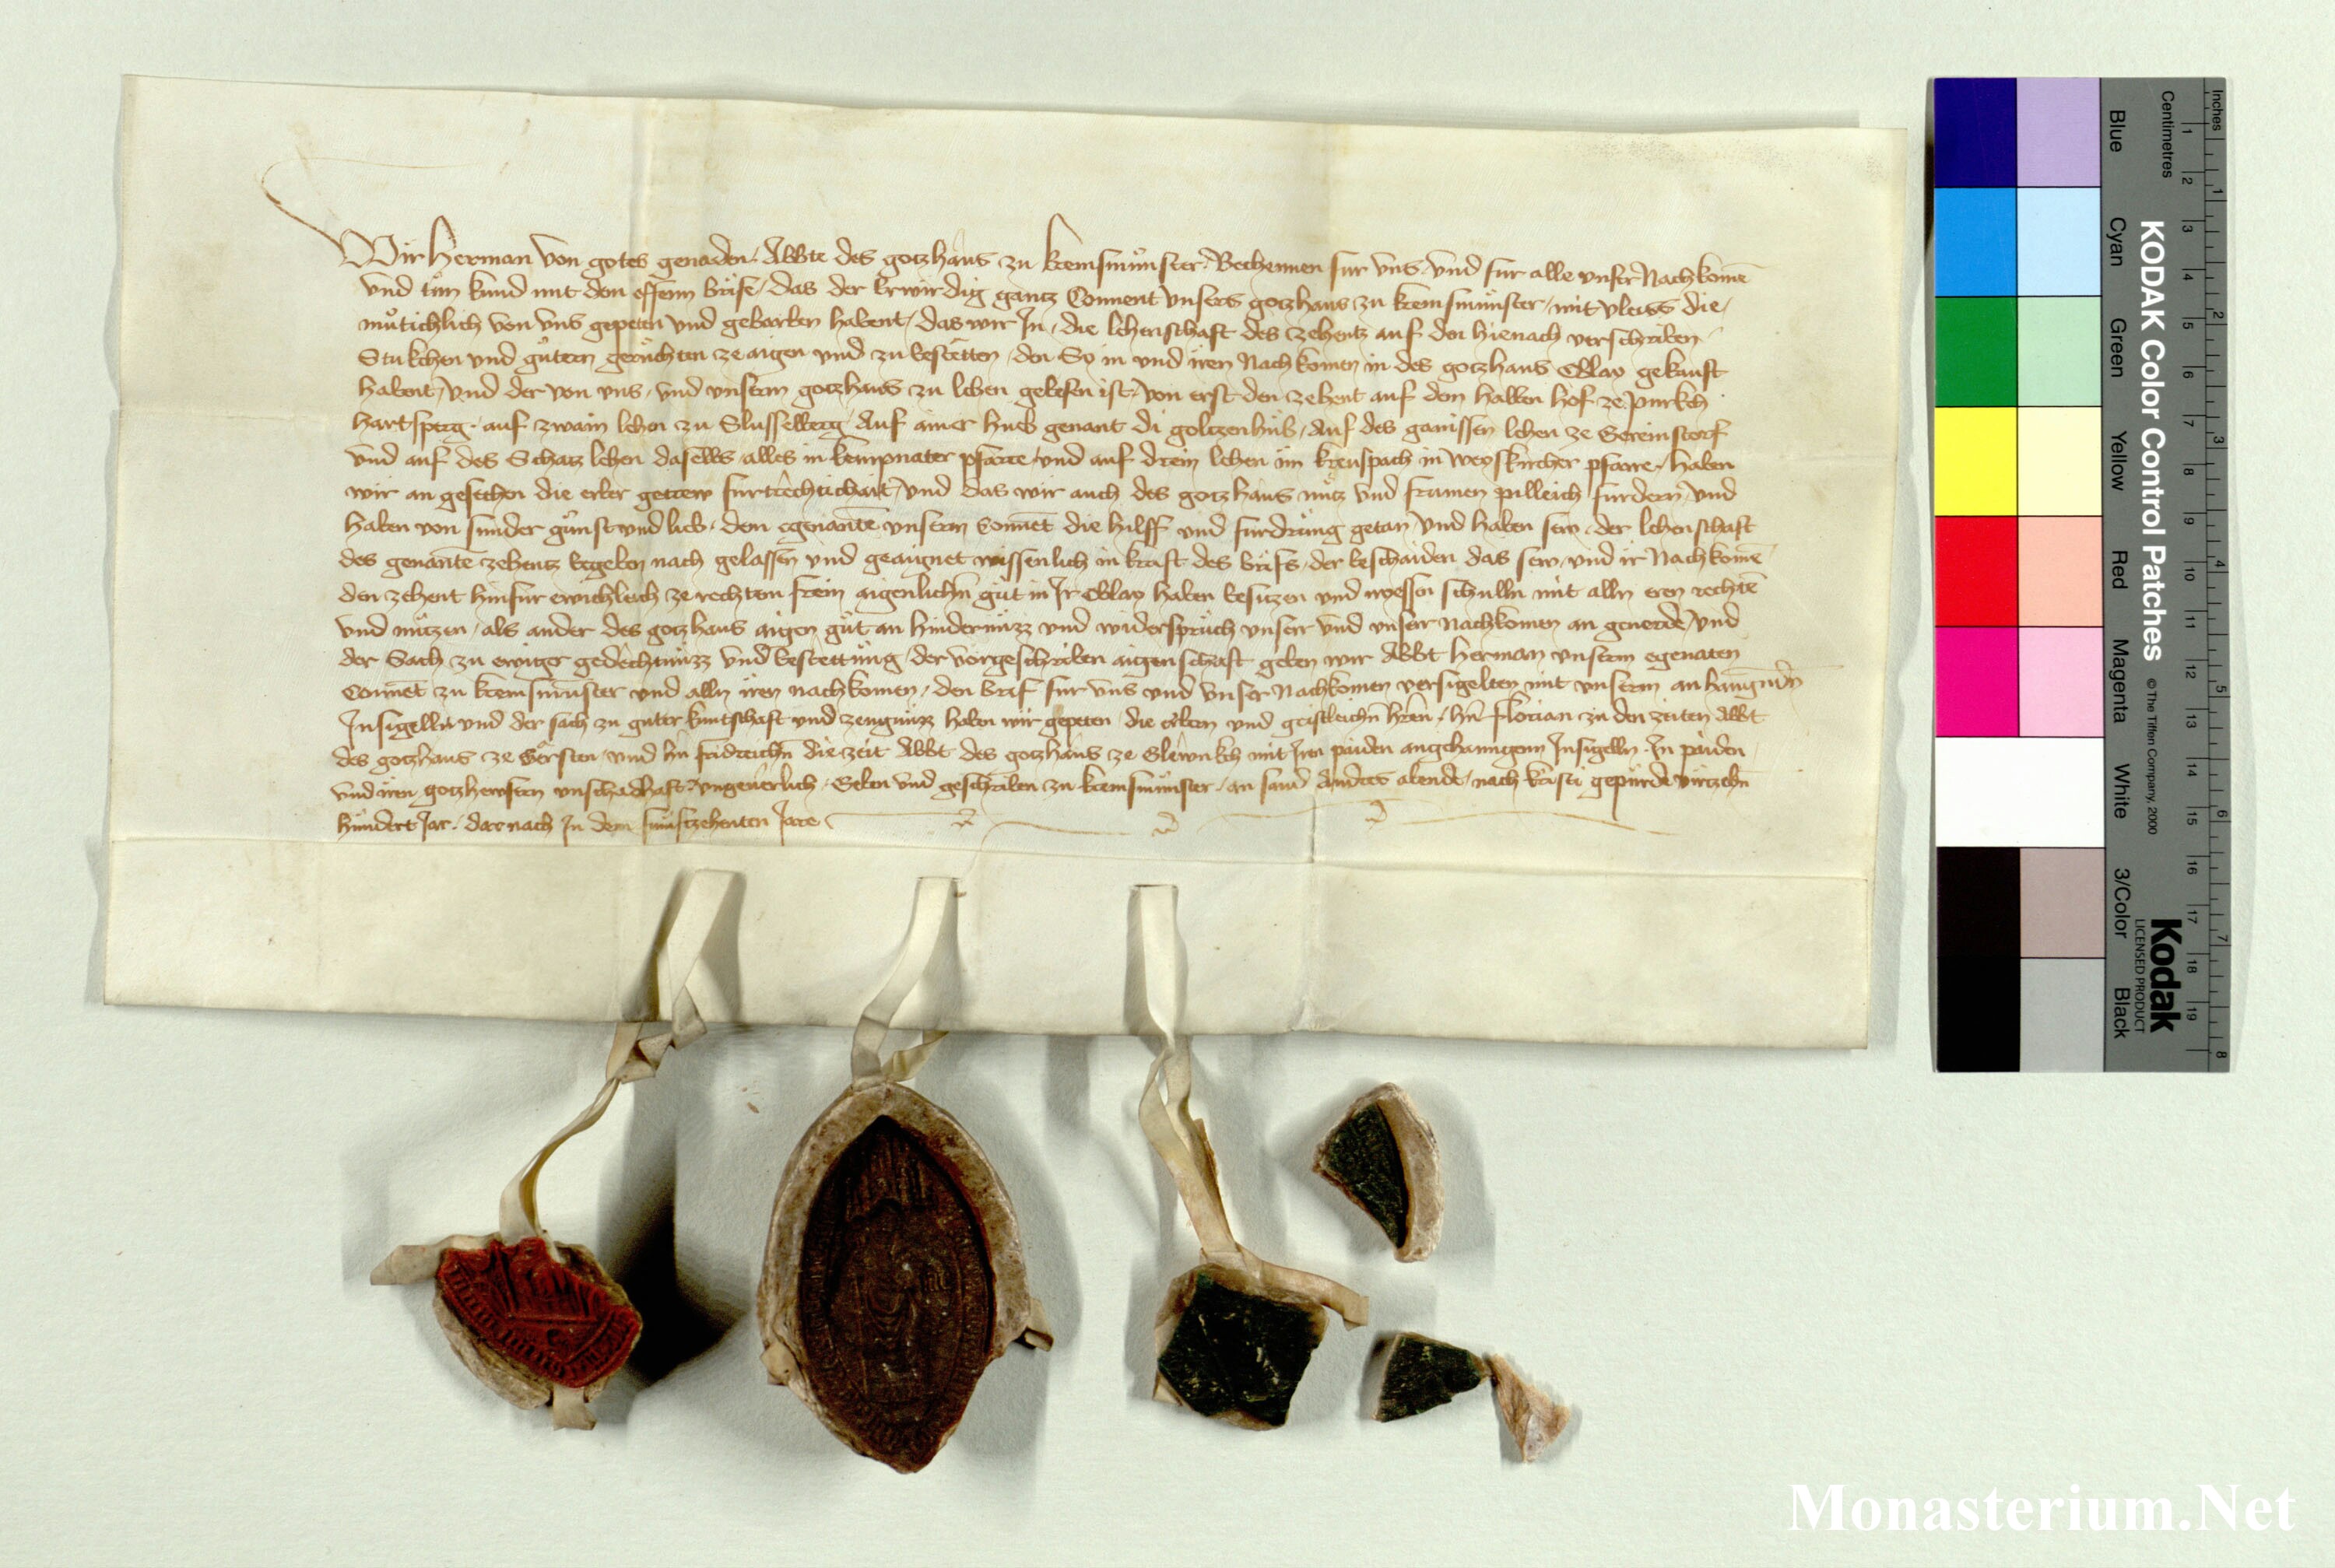 Wir Herman von gotes genaden Abbte des gotzhaus zu kremsmůnster Bechennen fur vns vnd fur alle vnser Nachkomē
vnd tůn kund mit dem offenn brife das der Erwirdig gantz Conuent vnsers gotzhaus zu kremsmůnster mit vleiss die
můtichlich von vns gepeten vnd gebarben habent das wir In die lehenschaft des zehentz auf den hienach verschriben
Stukchen vnd gůtern gerůchten ze aigen vnd zu bestetten den So in vnd iren Nachkomen in des gotzhaus Oblay gekauft
habent vnd der von vns vnd vnserm gotzhaus zu lehen gewesen ist von erst den zehent auf dem halben hof ze purkch
hartsperg auf zwain lehen zu Slusselberg Auf ainer hueb genant di goltzenhůb Auf des ganissen lehen ze Gereinstorf
vnd auf des Schatz lehen daselbs alles in kempnater pfarre vnd auf drein lehen im krenspach in weyskircher pfarre haben
wir an gesechen die erber getrew furtrechtichait vnd das wir auch des gotzhaus nůtz vnd frumen pilleich furdern vnd
haben von sunder gůnst vnd lieb dem egenantē vnserm Conuēt die hilff vnd furdrůng getan vnd haben sew der lehenschaft
des genantē zehentz begeben nach gelassen vnd geaignet wissenlich in kraft des brifs der beschaiden das sew vnd ir Nachkomē
den zehent hinfur ewichleich ze rechtem frein aigenlichn̄ gůt in Ir Oblay haben besitzen vnd niessen schulln mit alln eren rechtē
vnd nůtzen als ander des gotzhaus aigen gůt an hindernůzz vnd widerspruch vnser vnd vnser nachkomen an geuerde vnd
der Sach zu ewiger gedechtnůzz vnd bestettůng der vorgeschriben aigenschaft geben wir Abbt Herman vnserm egenaten
Conuēt zu kremsmůnster vnd alln iren nachkomen den brif fur vns vnd vnser Nachkomen versigelten mit vnserm anhangundn̄
Insigelln vnd der sach zu guter kuntschaft vnd zeugnůzz haben wir gepeten die erbern vnd geistleichn̄ hren̄ hn̄ Florian zu den zeiten Abbt
des gotzhaus ze Gersten vnd hn̄ fridreichn̄ die zeit Abbt des gotzhaus ze Glewnkch mit Iren paiden angehanngenn Insigelln In paiden
vnd iren gotzhewsern vnschadhaft vngeuerlich Geben vnd geschriben zu kremsmůnster an sand Andres abende nach kristi gepůrde virtzehn̄
hůndert Jar darnach In dem fůmftzehenten Jare
Inches
Centimetres
1 2 3 4 5 6 7 8
1 2 3 4 5 6 7 8 9 10 11 12 13 14 15 16 17 18 19
KODAK Color Control Patches
© The Tiffen Company, 2000
Kodak
LICENSED PRODUCT
Blue
Cyan
Green
Yellow
Red
Magenta
White
3/Color
Black
Monasterium.Net